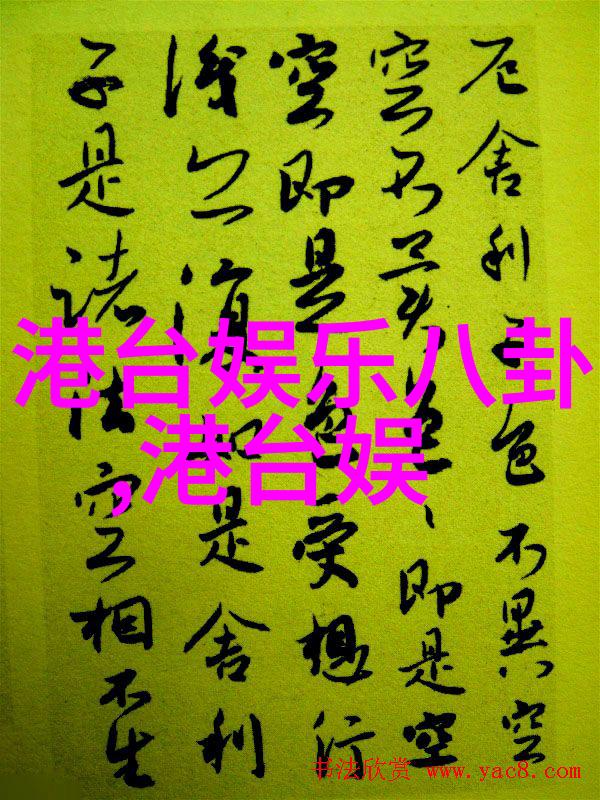 厄舍利子色不異空
空不異色色即是空
空即是色受想行
識亦復如是舍利
子是諸法空相不生
港台娱乐八卦
,港台娱
书法欣赏 www.yac8.com